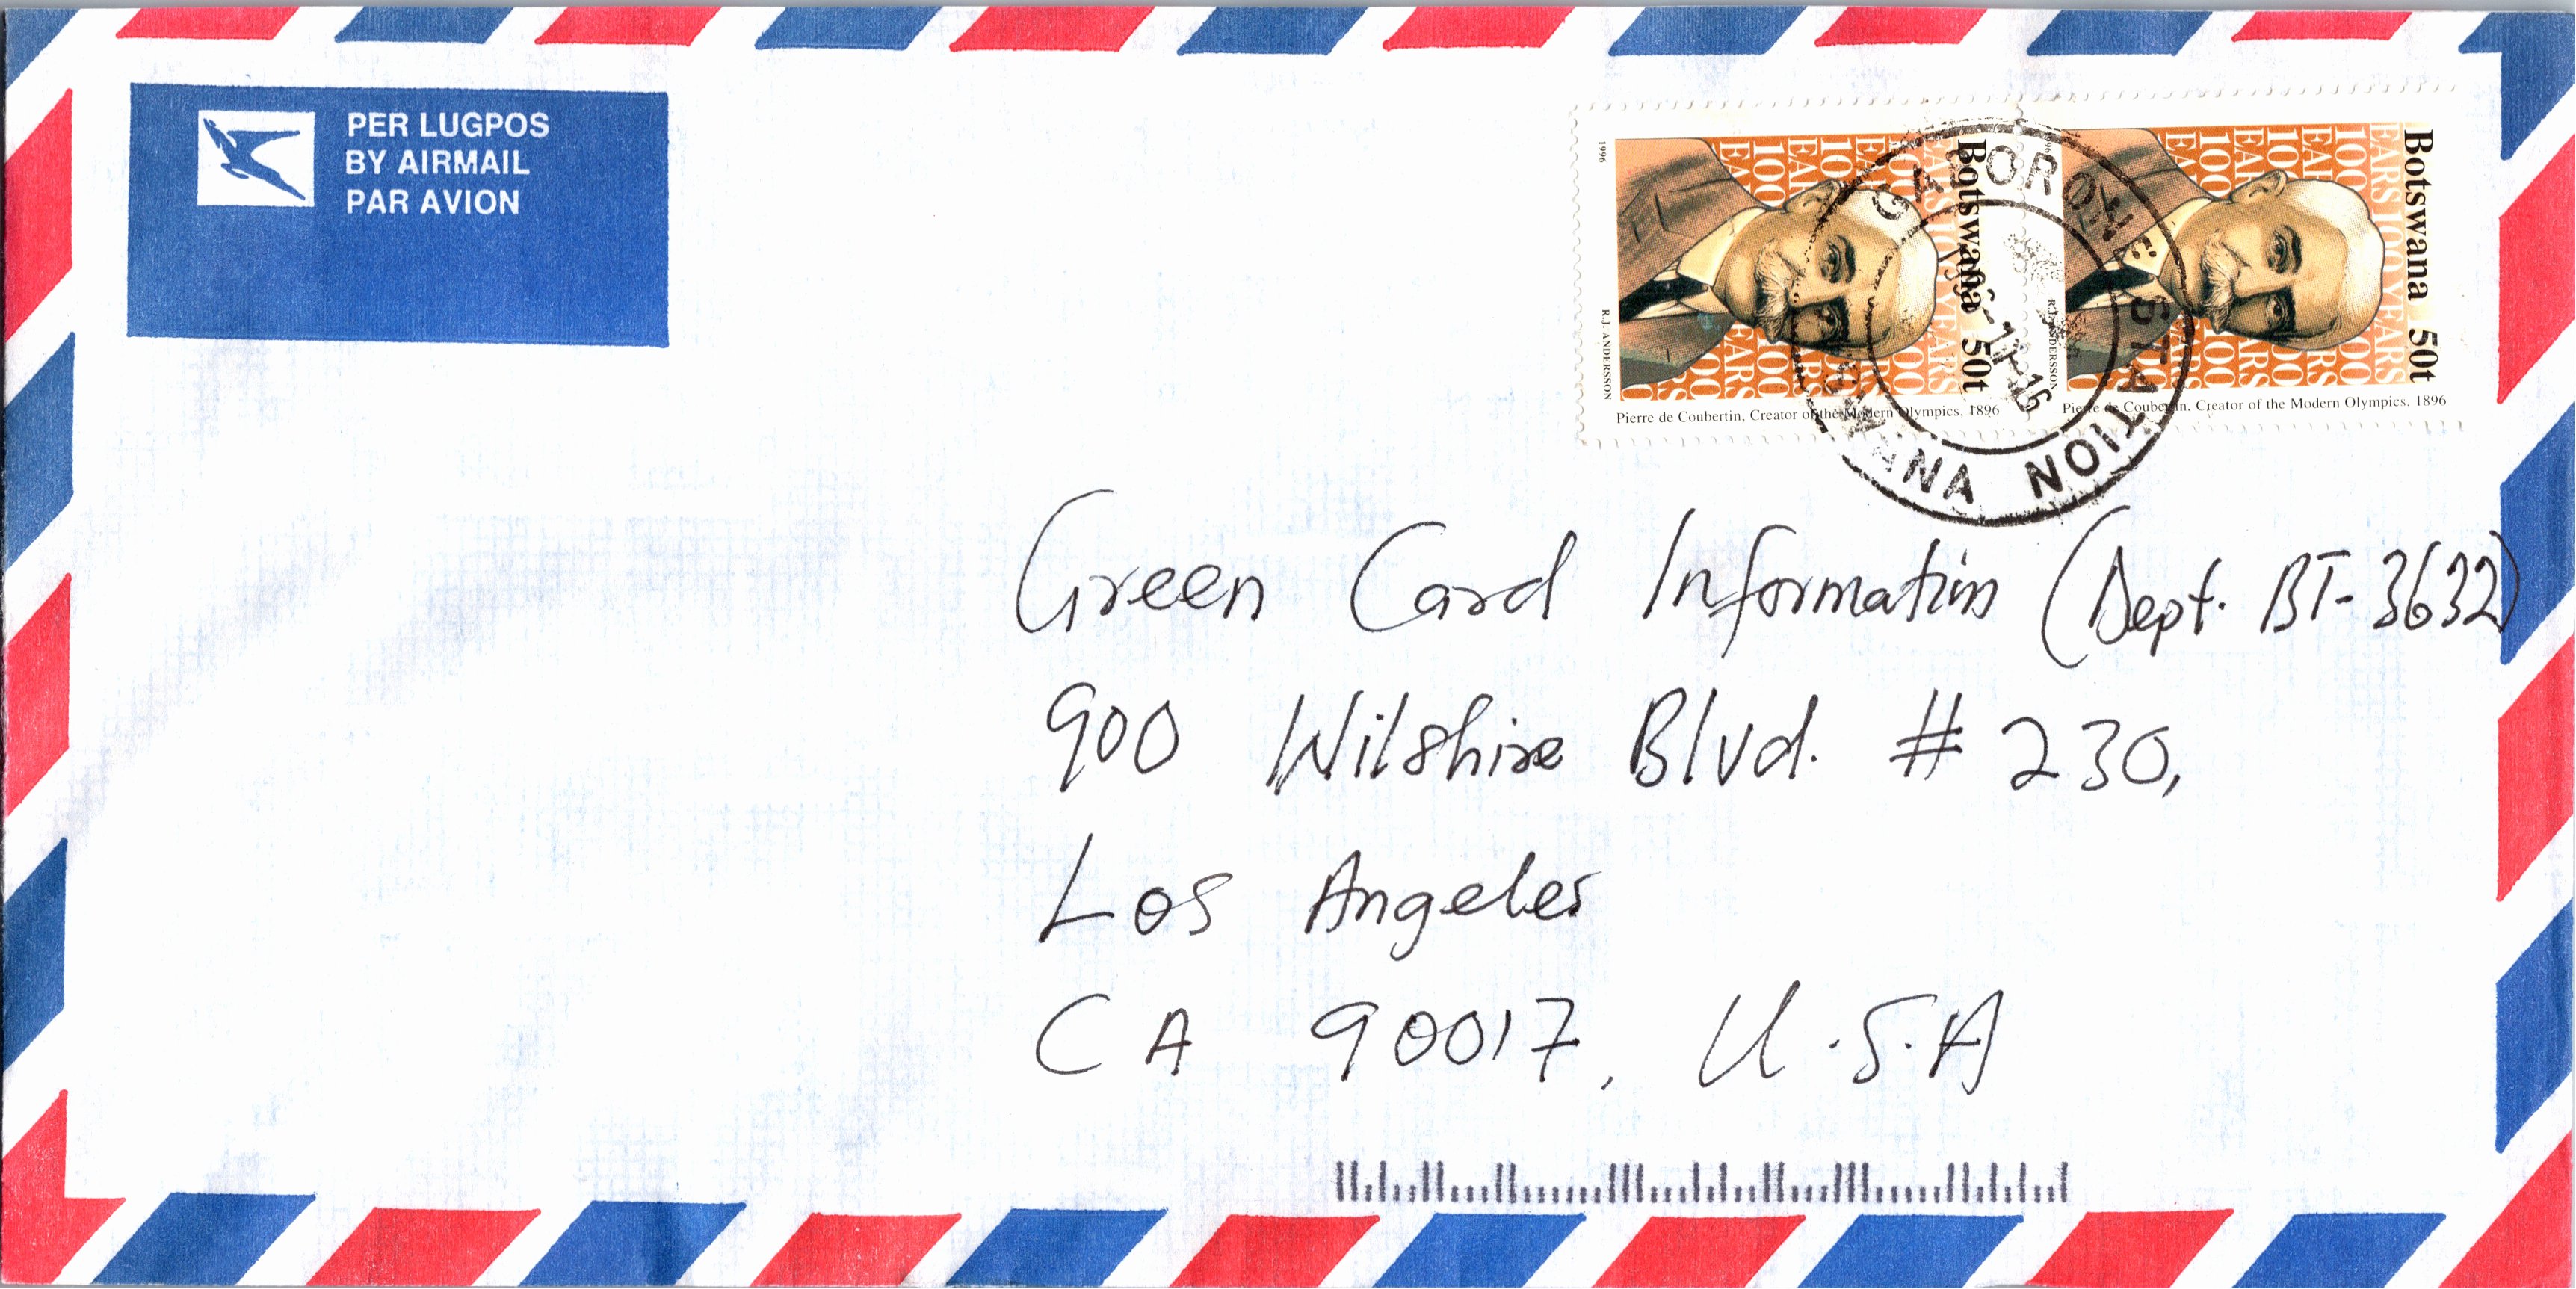 PER LUGPOS
BY AIRMAIL
PAR AVION
1996
R.J. ANDERSSON
Botswana 50t
100 YEARS
Pierre de Coubertin, Creator of the Modern Olympics, 1896
1996
R.J. ANDERSSON
Botswana 50t
100 YEARS
Pierre de Coubertin, Creator of the Modern Olympics, 1896
GABORONE STATION
Green Card Information (Dept. BT-3632)
900 Wilshire Blvd. # 230,
Los Angeles
CA 90017, U.S.A